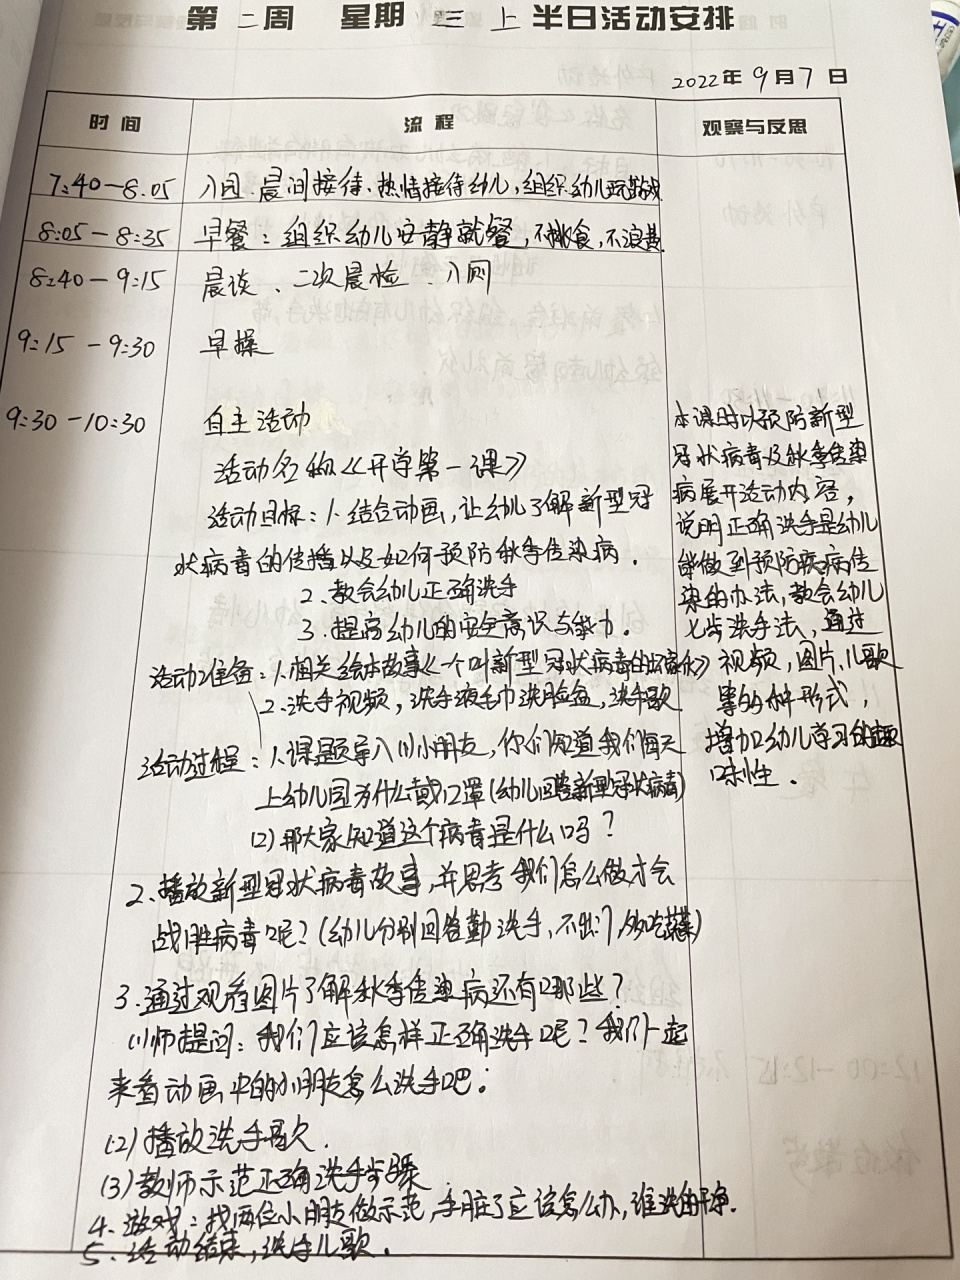 第二周 星期三 上半日活动安排
2022年9月7日
时间 流程 观察与反思
7:40—8:05 入园:晨间接待、热情接待幼儿,组织幼儿玩游戏
8:05—8:35 早餐:组织幼儿安静就餐,不挑食,不浪费
8:40—9:15 晨谈、二次晨检、入网
9:15—9:30 早操
9:30—10:30 自主活动
活动名称《开学第一课》
活动目标:1、结合动画,让幼儿了解新型冠
状病毒的传播以及如何预防秋季传染病.
2.教会幼儿正确洗手
3.提高幼儿的安全意识与能力.
活动准备:1.相关绘本故事《一个叫新型冠状病毒的坏家伙》
2.洗手视频,洗手液毛巾洗脸盆,洗手歌
活动过程:1.课题导入(1)小朋友,你们知道我们每天
上幼儿园为什么戴口罩(幼儿回答新型冠状病毒)
(2)那大家知道这个病毒是什么吗?
2.播放新型冠状病毒故事,并思考我们怎么做才会
战胜病毒呢?(幼儿分别回答勤洗手,不出门,多吃蔬菜)
3.通过观看图片了解秋季传染病还有哪些?
(1)师提问:我们应该怎样正确洗手呢?我们一起
来看动画中的小朋友怎么洗手吧:
(2)播放洗手歌.
(3)教师示范正确洗手步骤
4.游戏:找两位小朋友做示范,手脏了应该怎么办,谁洗的干净.
5.活动结束,洗手儿歌.
本课时以预防新型
冠状病毒及秋季传染
病展开活动内容,
说明正确洗手是幼儿
能做到预防疾病传
染的办法,教会幼儿
七步洗手法,通过
视频,图片,儿歌
等的种形式,
增加幼儿学习的趣
味性.